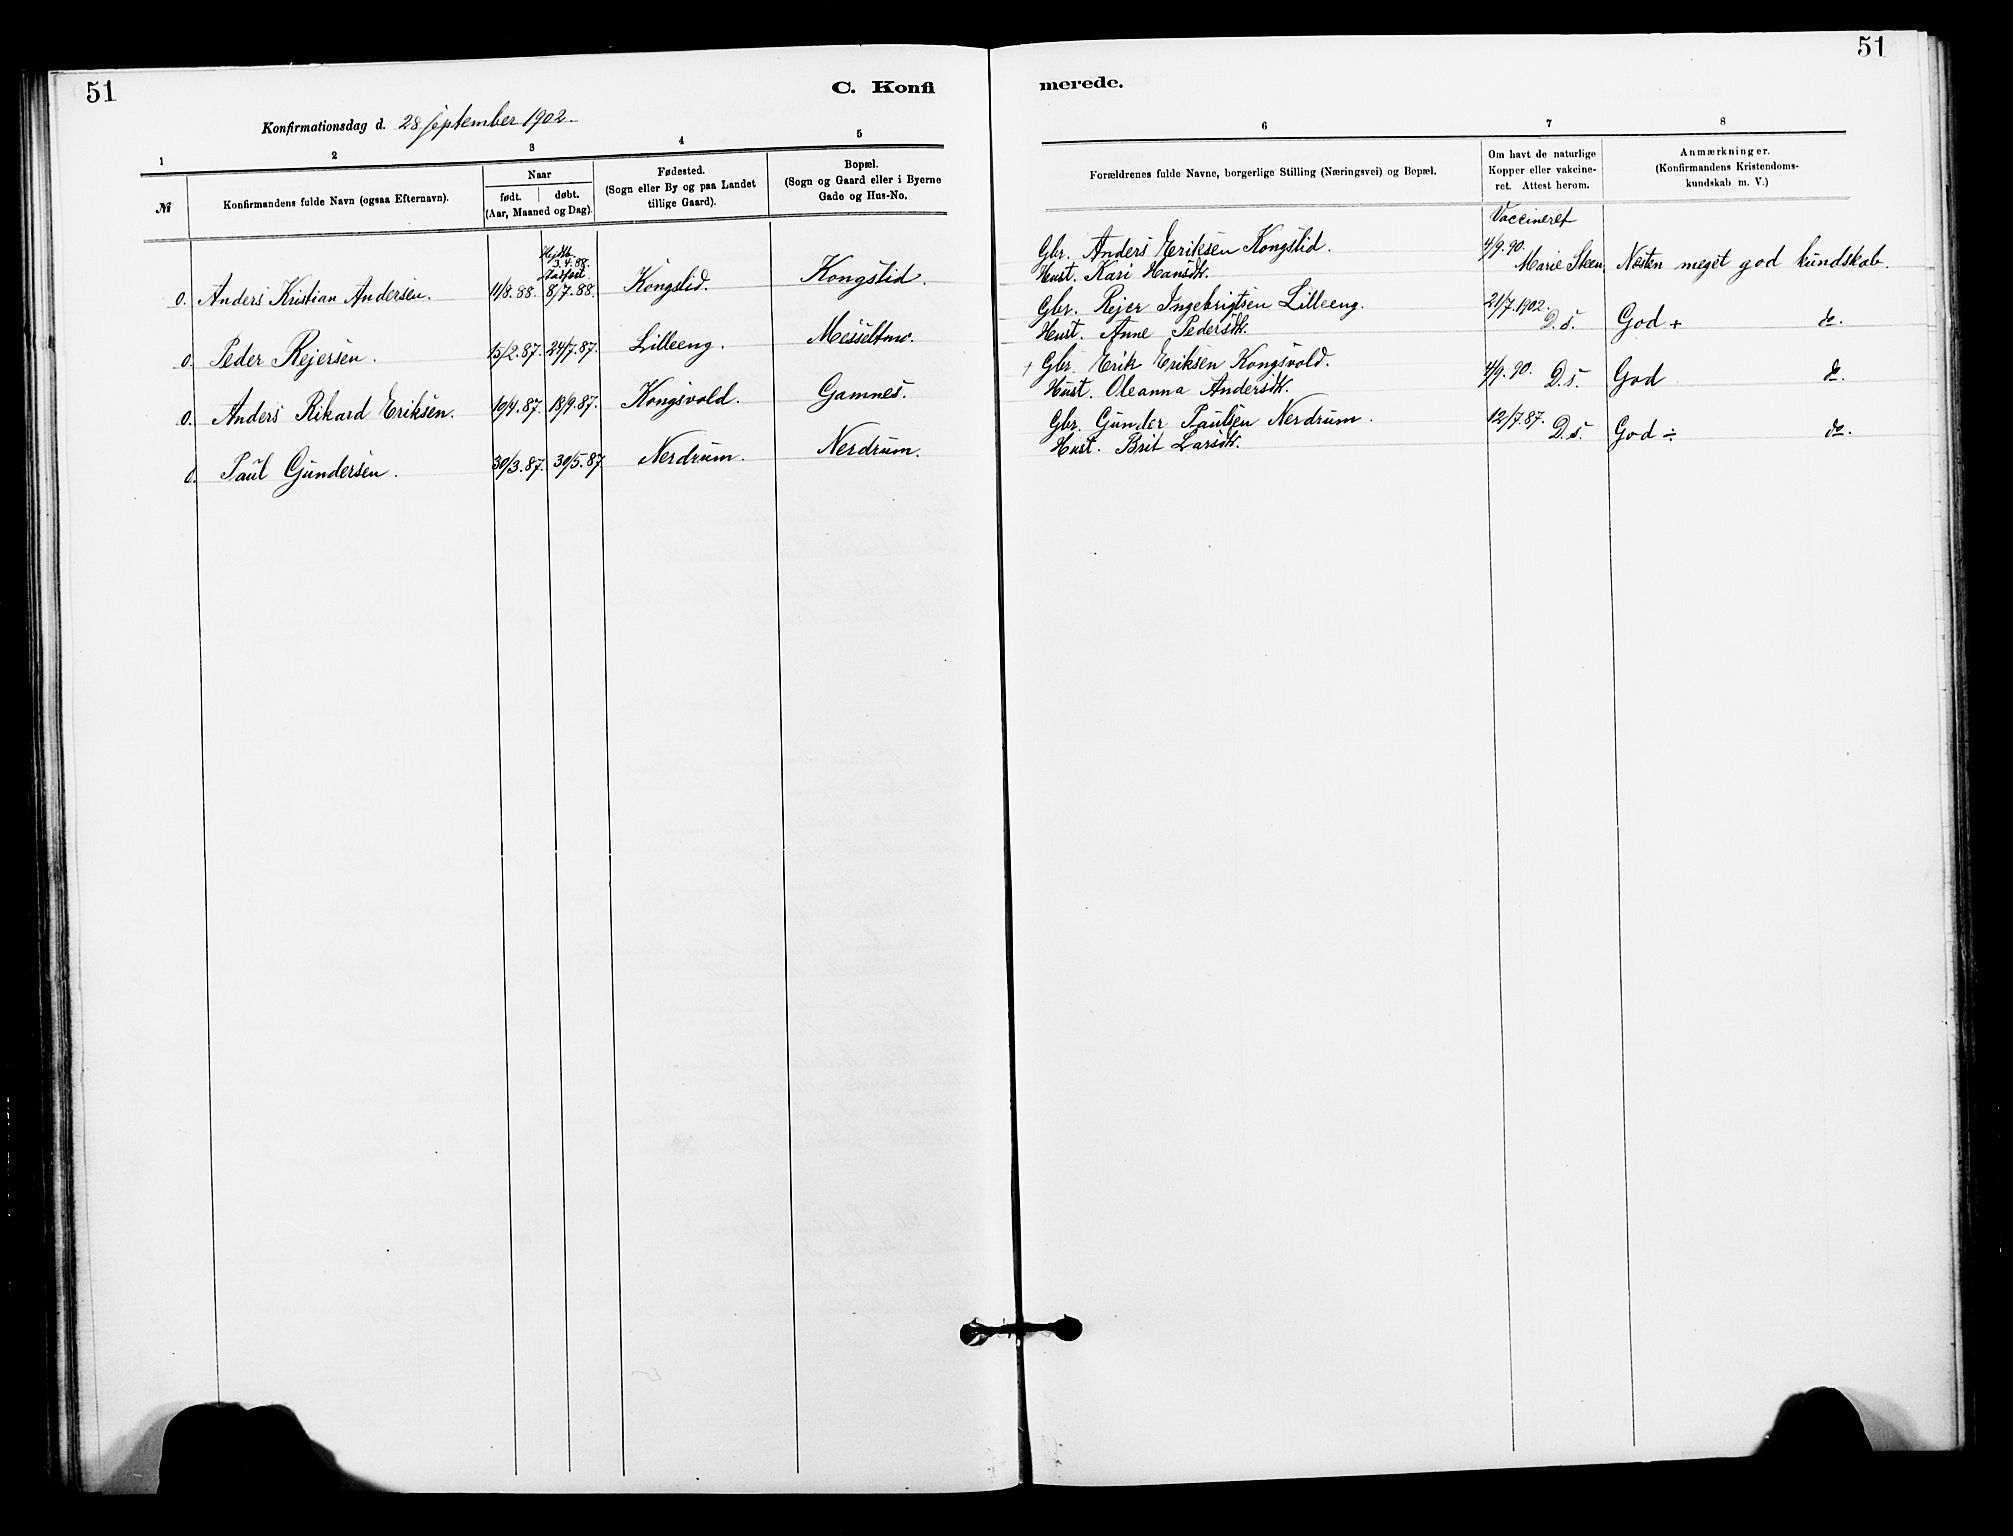 51
C. Konfi
merede.
51
Konfirmationsdag d. 28 september 1902.
1 2 3 4 5 6 7 8
№
Konfirmandens fulde Navn (ogsaa Efternavn).
Naar
født.
døbt.
(Aar, Maaned og Dag).
Fødested.
(Sogn eller By og paa Landet
tillige Gaard).
Bopæl.
(Sogn og Gaard eller i Byerne
Gade og Hus-No.
Forældrenes fulde Navne, borgerlige Stilling (Næringsvei) og Bopæl.
Om havt de naturlige
Kopper eller vakcine-
ret. Attest herom.
Anmærkninger.
(Konfirmandens Kristendoms-
kundskab m. V.)
Vaccineret
Hjdb.
3.4.88.
Stadfest
0. Anders Kristian Andersen. 11/3.88. 8/7.88. Kongslid. Kongslid.
Gbr. Anders Eriksen Kongslid.
Hust. Kari Hansdtr.
4/9.90.
Marie Steen
Næsten meget god kundskab.
0. Peder Rejersen. 15/2.87. 24/7.87. Lilleeng. Messeltmo.
Gbr. Rejer Ingebrigtsen Lilleeng.
Hust. Anne Pedersdtr.
21/7.1902.
D.s.
God + do.
0. Anders Rikard Eriksen. 19/4.87. 18/9.87. Kongsvold. Gamnes.
+ Gbr. Erik Eriksen Kongsvold.
Hust. Oleanna Andersdtr.
4/9.90. D.s. God do.
0. Paul Gundersen. 30/3.87. 30/5.87 Nerdrum. Nerdrum.
Gbr. Gunder Paulsen Nerdrum.
Hust. Brit Larsdtr.
12/7.87.
D.s.
God ÷ do.